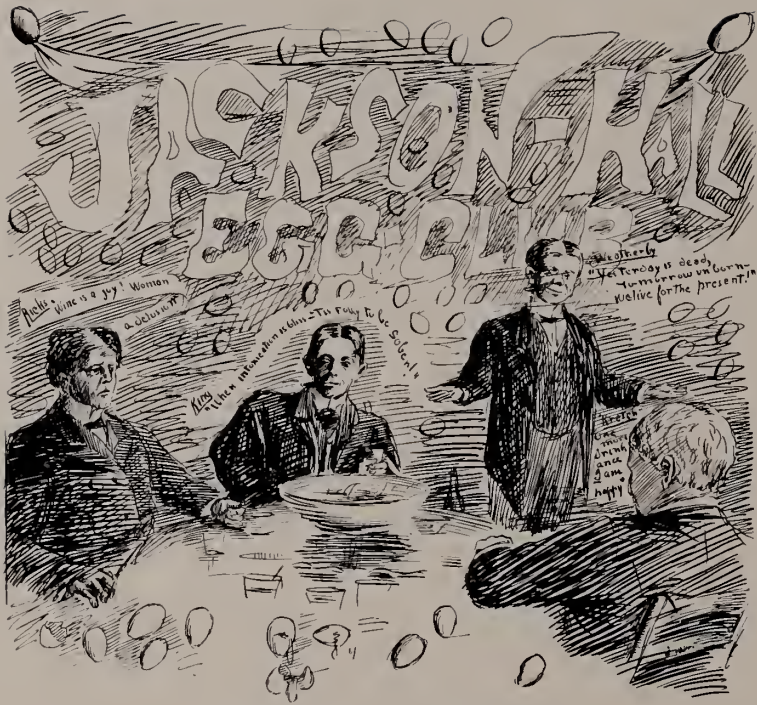 JACKSON HALL
EGG CLUB
Ricks "Wine is a joy! Woman
a delusion"
King
"When intoxication is bliss - Tis folly to be sober!"
Weatherly
"Yesterday is dead,
Tomorrow unborn -
We live for the present!"
Kretch
more
drink
and
I am
happy"